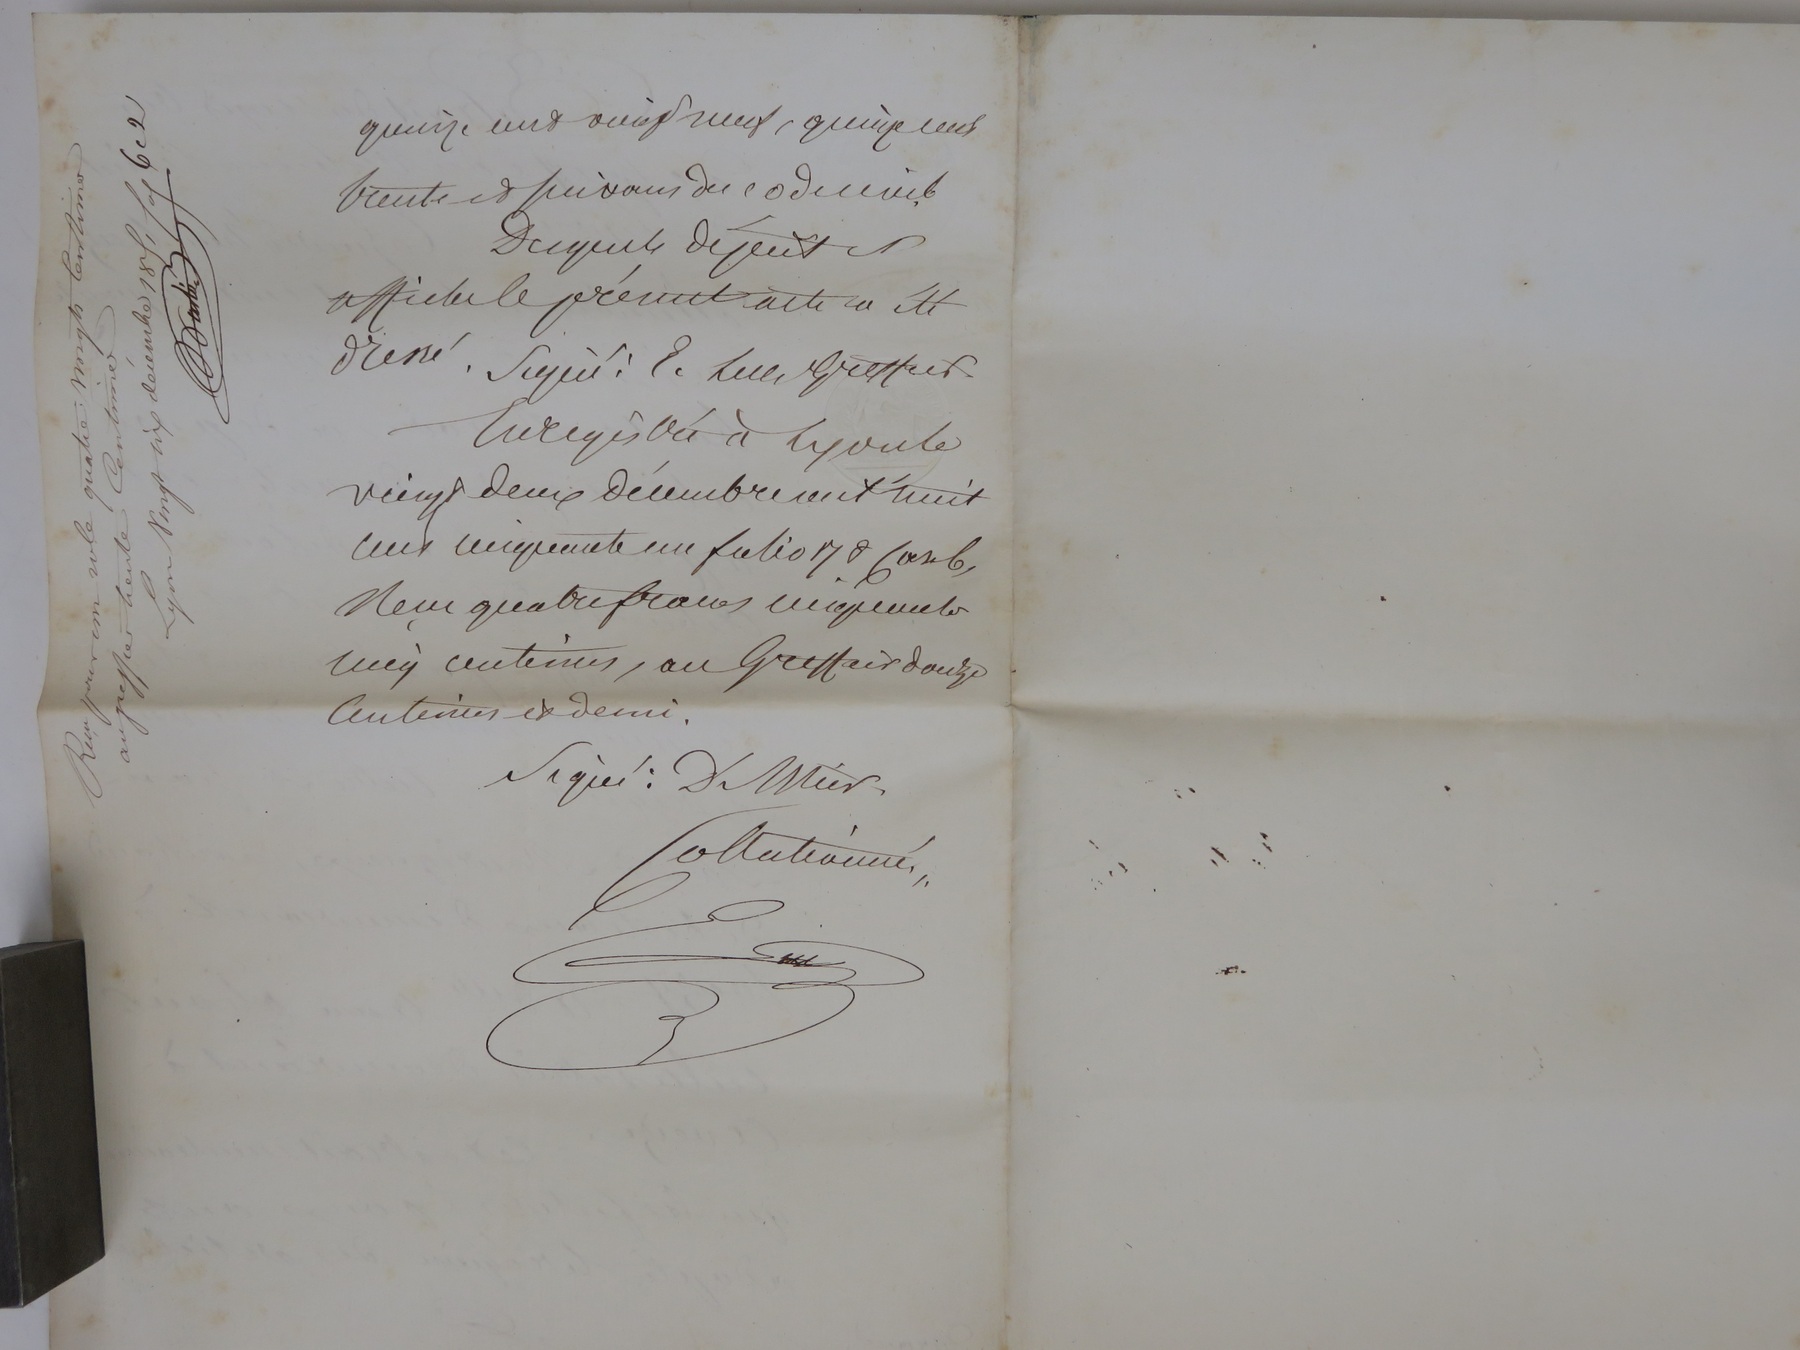 quinze cent vingt neuf, quinze cent
trente et suivans du code civil
Duquels dépôt et
affiche le présent acte a été
dressé. Signé: E. Luc, Greffier
Enregistré à Lyon le
vingt deux décembre mil huit
cent cinquante un folio 178 Case 6,
Reçu quatre francs cinquante
cinq centimes, au Greffier douze
Centimes et demi.
Signé:
Collationné,,
Reçu pour un role quatre vingts Centimes
au greffier trente Centimes
Lyon Vingt six décembre 1851,